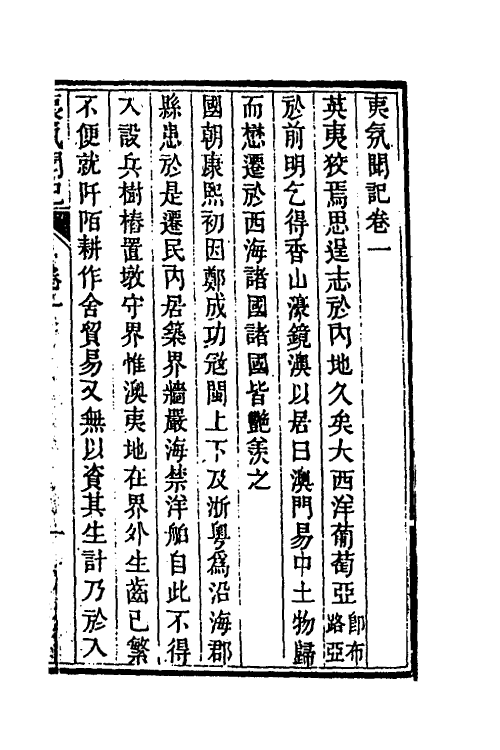 夷氛聞記卷一
英夷狡焉思逞志於內地久矣大西洋葡萄亞即布路亞
於前明乞得香山濠鏡澳以居曰澳門易中土物歸
而懋遷於西海諸國諸國皆艷羨之
國朝康熙初因鄭成功寇閩上下及浙粵爲沿海郡
縣患於是遷民內居築界牆嚴海禁洋舶自此不得
入設兵樹樁置墩守界惟澳夷地在界外生齒已繁
不便就阡陌耕作舍貿易又無以資其生計乃於入
夷氛聞記